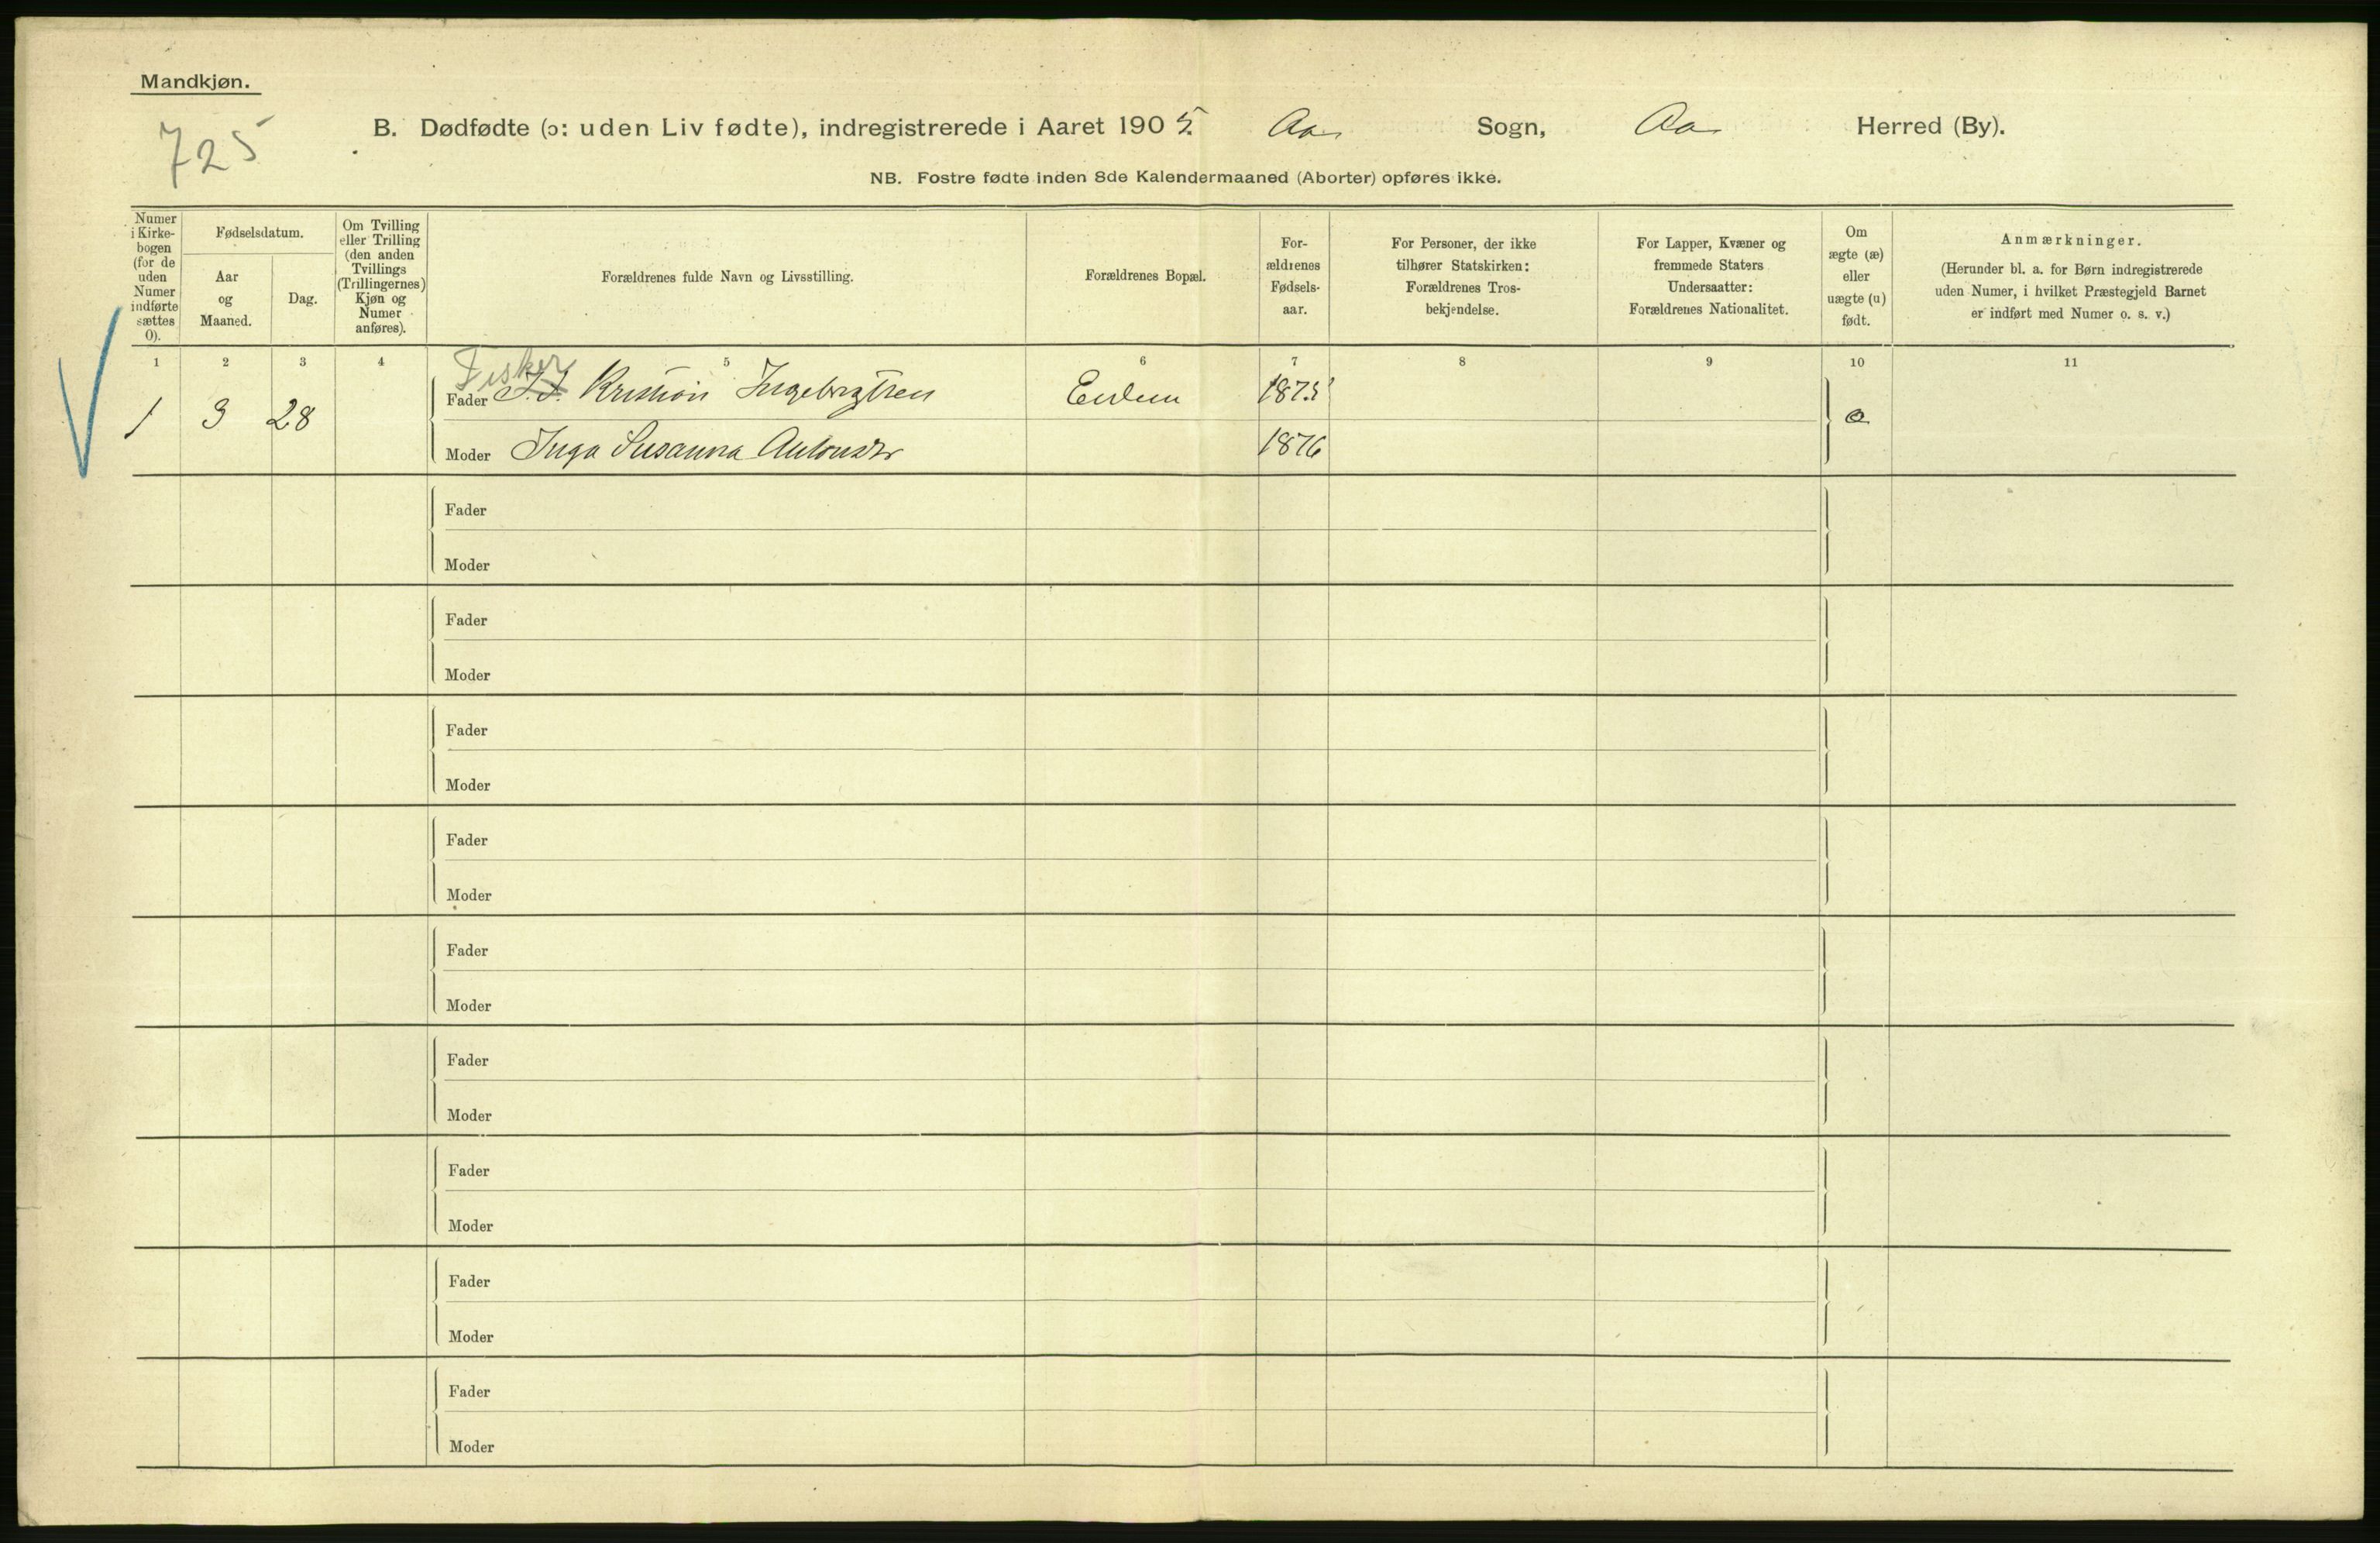 Mandkjøn.
725
B. Dødfødte (ɔ: uden Liv fødte), indregistrerede i Aaret 1905. Aa Sogn, Aa Herred (By).
NB. Fostre fødte inden 8de Kalendermaaned (Aborter) opføres ikke.
Numer i Kirke-bogen (for de uden Numer indførte sættes 0).
Fødselsdatum.
Aar og Maaned.
Dag.
Om Tvilling eller Trilling (den anden Tvillings (Trillingernes) Kjøn og Numer anføres).
Forældrenes fulde Navn og Livsstilling.
Forældrenes Bopæl.
For-ældrenes Fødsels-aar.
For Personer, der ikke tilhører Statskirken: Forældrenes Tros-bekjendelse.
For Lapper, Kvæner og fremmede Staters Undersaatter: Forældrenes Nationalitet.
Om ægte (æ) eller uægte (u) født.
Anmærkninger.
(Herunder bl. a. for Børn indregistrerede uden Numer, i hvilket Præstegjeld Barnet er indført med Numer o. s. v.)
1 2 3 4 5 6 7 8 9 10 11
Fisker
1 3 28 Fader Kristian Ingebrigtsen
Moder Inga Susanna 1876
Fader
Moder
Fader
Moder
Fader
Moder
Fader
Moder
Fader
Moder
Fader
Moder
Fader
Moder
Fader
Moder
Fader
Moder